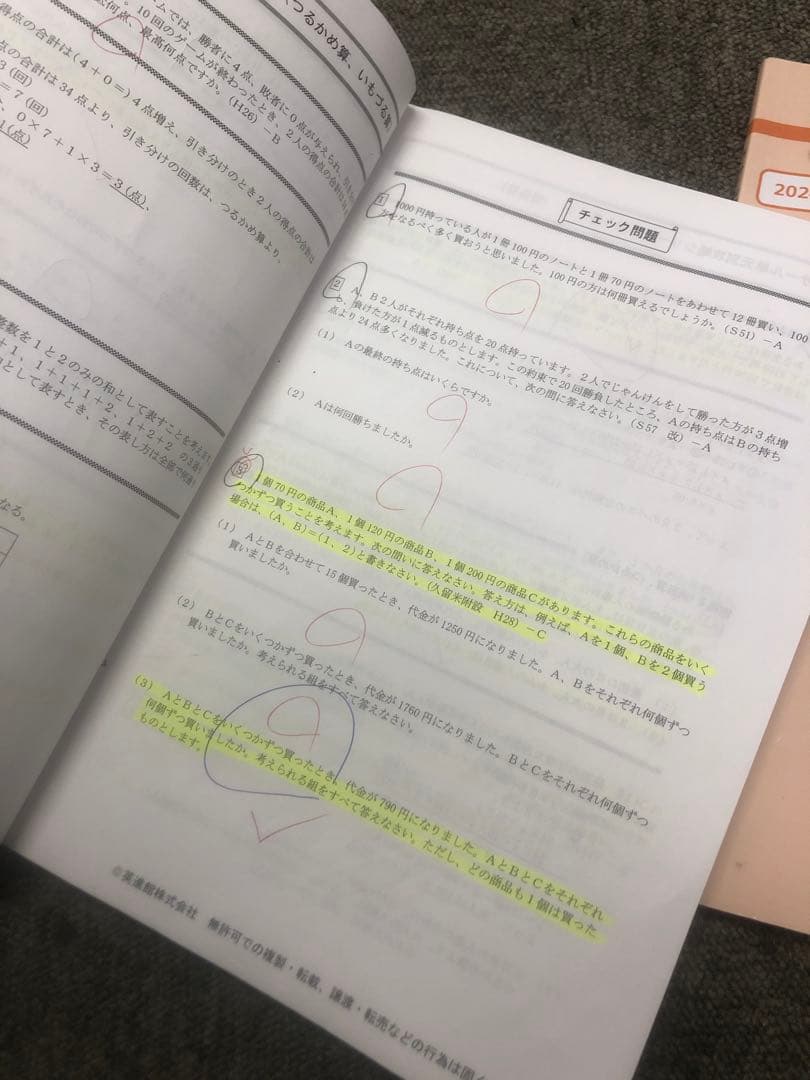 つるかめ算、いもづる算
ームでは、勝者に4点、敗者に0点が与えられ、引き分
10回のゲームが終わったとき、2人の得点の合計は
最高何点ですか。(H26)-B
点の合計は(4+0=)4点増え、引き分けのとき2人の得点の合計は
の合計は34点より、引き分けの回数は、つるかめ算より、
3(回)
=7(回)
、0×7+1×3=3(点)、
1(点)
整数を1と2のみの和として表すことを考え
+1、1+1+1+2、1+2+2 の3通り
として表すとき、その表し方は全部で何通
なる。
チェック問題
1 1000円持っている人が1冊100円のノートと1冊70円のノートをあわせて12冊買い、100
をなるべく多く買おうと思いました。100円の方は何冊買えるでしょうか。(S51)-A
2 A、B2人がそれぞれ持ち点を20点持っています。2人でじゃんけんをして勝った方が3点増
え、負けた方が1点減るものとします。この約束で20回勝負したところ、Aの持ち点はBの持ち
点より24点多くなりました。これについて、次の問に答えなさい。(S57 改)-A
(1) Aの最終の持ち点はいくらですか。
(2) Aは何回勝ちましたか。
3 1個70円の商品A、1個120円の商品B、1個200円の商品Cがあります。これらの商品をいく
つかずつ買うことを考えます。次の問いに答えなさい。答え方は、例えば、Aを1個、Bを2個買う
場合は、(A、B)=(1、2)と書きなさい。(久留米附設 H28)-C
(1) AとBを合わせて15個買ったとき、代金が1250円になりました。A、Bをそれぞれ何個ずつ
買いましたか。
(2) BとCをいくつかずつ買ったとき、代金が1760円になりました。BとCをそれぞれ何個ずつ
買いましたか。考えられる組をすべて答えなさい。
(3) AとBとCをいくつかずつ買ったとき、代金が790円になりました。AとBとCをそれぞれ
何個ずつ買いましたか。考えられる組をすべて答えなさい。ただし、どの商品も1個は買った
ものとします。
©英進館株式会社 無許可での複製・転載、譲渡・転売などの行為は固く
202